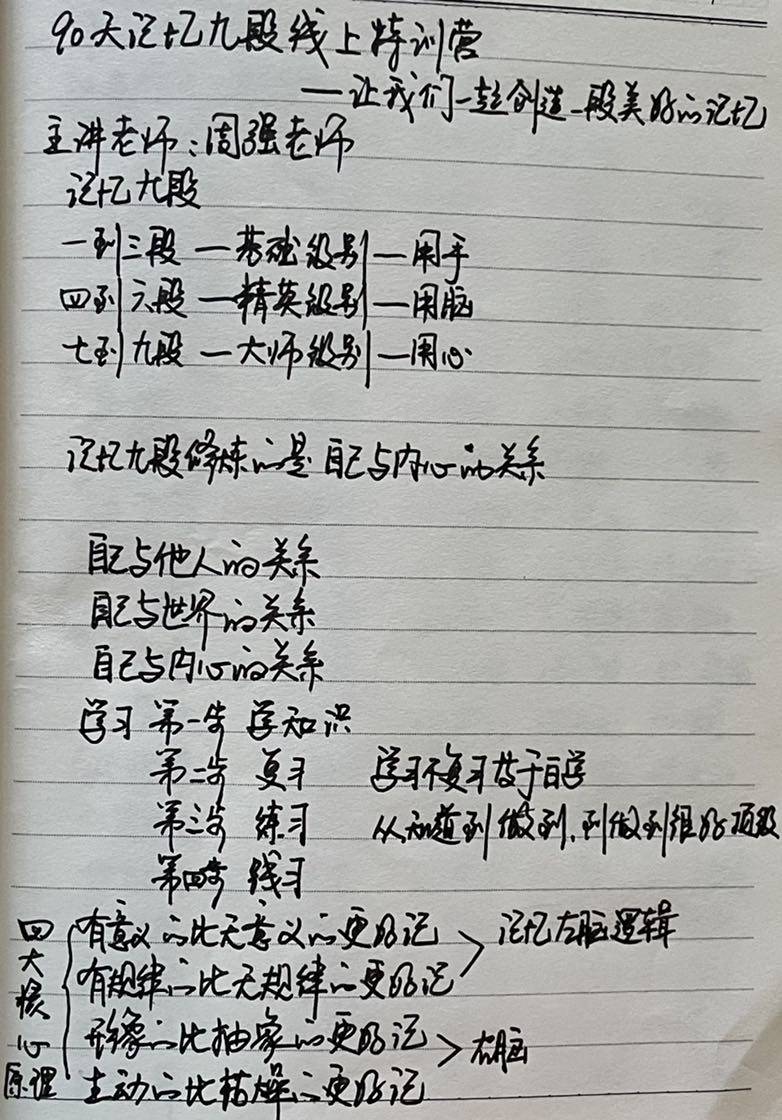 90天记忆九段线上特训营
——让我们一起创造一段美好的记忆
主讲老师：周强老师
记忆九段
一到三段—基础级别—用手
四到六段—精英级别—用脑
七到九段—大师级别—用心
记忆九段修炼的是自己与内心的关系
自己与他人的关系
自己与世界的关系
自己与内心的关系
学习 第一步 学知识
第二步 复习 学习不复习等于白学
第三步 练习 从知道到做到，到做到很好顶级
第四步 习
四大核心原理
有意义的比无意义的更好记
有规律的比无规律的更好记
记忆左脑逻辑
形象的比抽象的更好记
生动的比枯燥的更好记
右脑